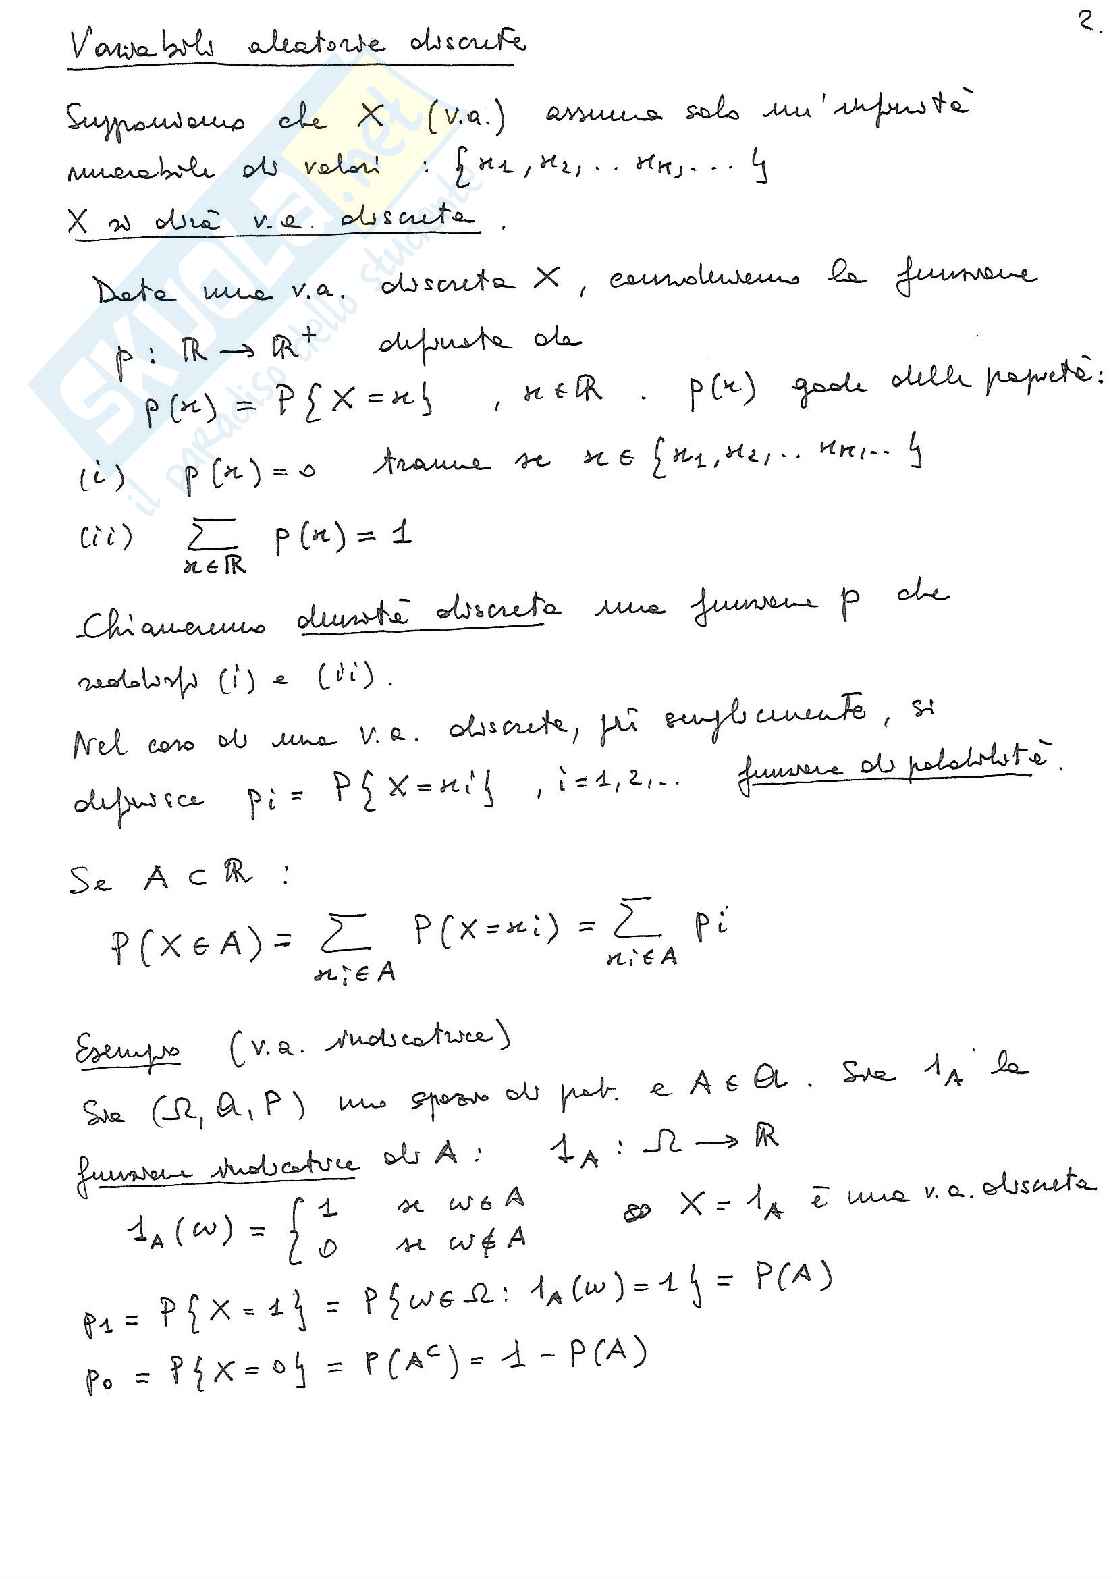 2.
Variabili aleatorie discrete
Supponiamo che X (v.a.) assuma solo un'infinità
numerabile di valori : {x1, x2, .. xn, ... }
X si dirà v.a. discreta .
Data una v.a. discreta X , consideriamo la funzione
p : ℝ → ℝ⁺ definita da
p(x) = P{X = x} , x ∈ ℝ . p(x) gode delle proprietà :
(i) p(x) = 0 tranne se x ∈ {x1, x2, .. xn, .. }
(ii) ∑ p(x) = 1
x ∈ ℝ
Chiameremo densità discreta una funzione p che
soddisfi (i) e (ii).
Nel caso di una v.a. discreta, più semplicemente, si
definisce pi = P{X = xi} , i = 1, 2, .. funzione di probabilità.
Se A ⊂ ℝ :
P(X ∈ A) = ∑ P(X = xi) = ∑ pi
xi ∈ A xi ∈ A
Esempio (v.a. indicatrice)
Sia (Ω, a, P) uno spazio di prob. e A ∈ a . Sia 1A la
funzione indicatrice di A : 1A : Ω → ℝ
1A(ω) = { 1 se ω ∈ A
0 se ω ∉ A X = 1A è una v.a. discreta
p1 = P{X = 1} = P{ω ∈ Ω : 1A(ω) = 1} = P(A)
p0 = P{X = 0} = P(Aᶜ) = 1 − P(A)
SKUOLA.net
il paradiso dello studente